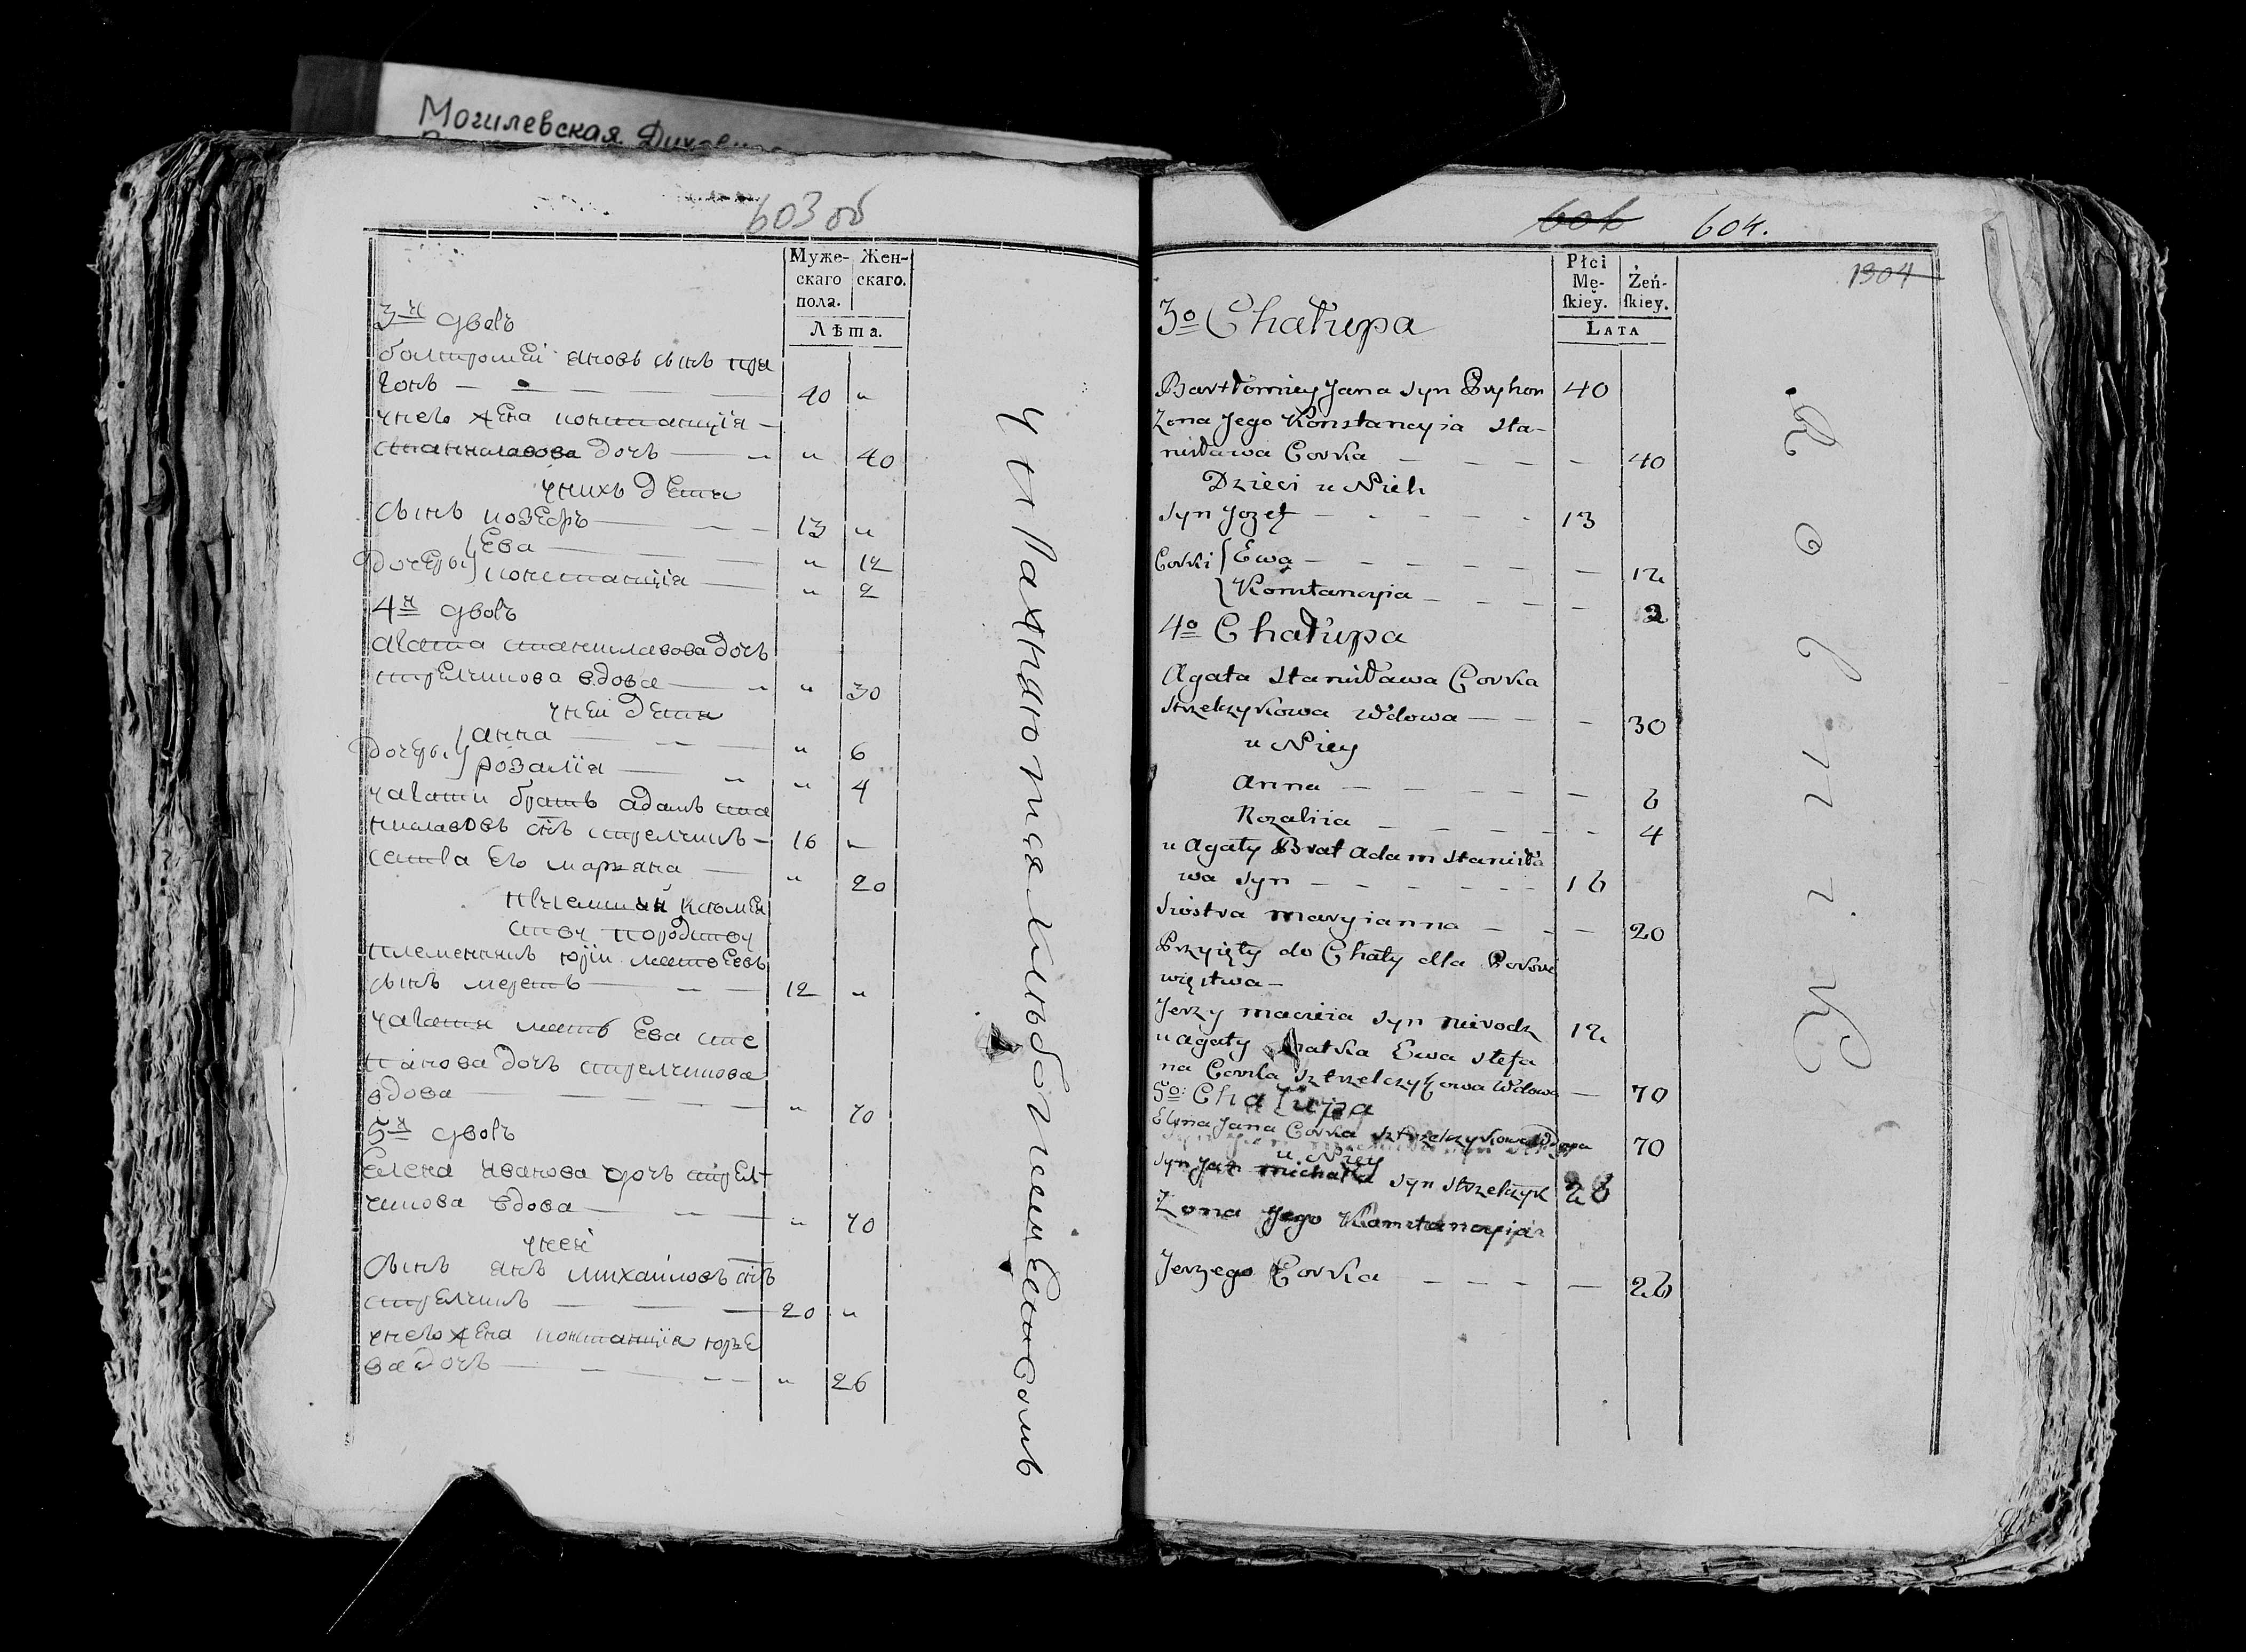 Могилевская Духовная
603 об
Муже- Жен-
скаго скаго.
пола.
Лѣта.
3й дворъ
балтромеи яновъ сынъ при
гонъ — — — 40 "
унего жена констанція —
станиславова дочь — — " 40
унихъ дети
сынъ иозефъ — — — 13 "
дочеры { Ева — — — " 12
констанція — " 2
4й дворъ
агата станиславова дочь
стрелчикова вдова — — " 30
уней дети
дочеры { анна — — — " 6
розалія — — " 4
уагати братъ адамъ ста
ниславовъ снъ стрелчикъ — 16 "
сестра его марьяна — " 20
племянникъ юріи матвеевъ
сынъ — — — 12 "
уагати мать Ева сте
панова дочь стрелчикова
вдова — — — — " 70
5й дворъ
елена иванова дочь стрел
чикова вдова — — — " 70
уней
Сынъ янъ михаиловъ снъ
стрелчикъ — — — 20 "
унего жена констанція юрье
ва дочь — — — — " 26
604.
1304
Płci
Mę- Żeń-
ſkiey. ſkiey.
LATA
3o Chałupa
Bartłomiey Jana syn Pryhon 40
Zona Jego Konstancyia Sta-
nisława Corka — — — — — 40
Dzieci u Nich
Syn Jozef — — — — 13
Corki { Ewa — — — — — — 12
Konstancyia — — — — 2
4o Chałupa
Agata Stanisława Corka
Strzelczykowa Wdowa — — — 30
u Niey
Anna — — — — — — 6
Rozaliia — — — — — 4
u Agaty Brat Adam Stanisła
wa Syn — — — — — 16
Siostra Maryianna — — — 20
Przyięty do Chaty dla Pokre
więstwa —
Jerzy Macieia Syn 12
u Agaty Matka Ewa Stefa
na Corka Sztrzelczykowa Wdowa — 70
5o: Chałupa
Elena Jana Corka Sztrzelczykowa Wdowa 70
u Niey
Syn Jan Michała Syn Strzelczyk 20
Zona Jego Konstancyia
Jerzego Corka — — — — 26